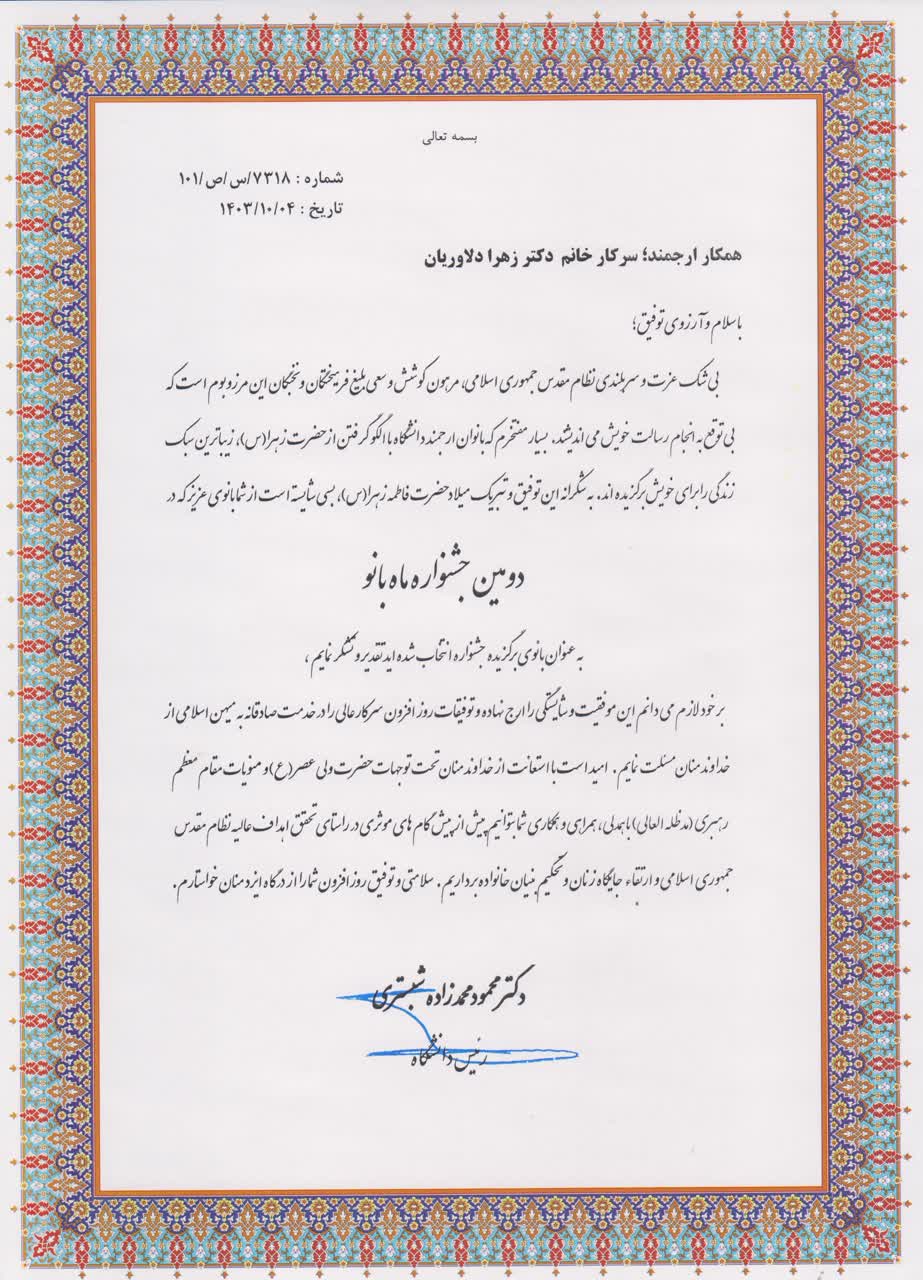 بسمه تعالی
شماره : ۷۳۱۸/س/ص/۱۰۱
تاریخ : ۱۴۰۳/۱۰/۰۴
همکار ارجمند؛ سرکار خانم دکتر زهرا دلاوریان
با سلام و آرزوی توفیق؛
بی شک عزت و سربلندی نظام مقدس جمهوری اسلامی، مرهون کوشش و سعی بلیغ فرهیختگان و نخبگان این مرز و بوم است که
بی توقع به انجام رسالت خویش می اندیشند. بسیار مفتخرم که بانوان ارجمند دانشگاه با الگو گرفتن از حضرت زهرا(س)، زیباترین سبک
زندگی را برای خویش برگزیده اند. به شکرانه این توفیق و تبریک میلاد حضرت فاطمه زهرا(س)، بسی شایسته است از شما بانوی عزیز که در
دومین جشنواره ماه بانو
به عنوان بانوی برگزیده جشنواره انتخاب شده اید تقدیر و تشکر نمایم ،
بر خود لازم می دانم این موفقیت و شایستگی را ارج نهاده و توفیقات روز افزون سرکار عالی را در خدمت صادقانه به میهن اسلامی از
خداوند منان مسئلت نمایم . امید است با استعانت از خداوند منان تحت توجهات حضرت ولی عصر(ع) و منویات مقام معظم
رهبری (مدظله العالی) با همدلی، همراهی و همکاری شما بتوانیم بیش از پیش گام های موثری در راستای تحقق اهداف عالیه نظام مقدس
جمهوری اسلامی و ارتقاء جایگاه زنان و تحکیم بنیان خانواده برداریم . سلامتی و توفیق روز افزون شما را از درگاه ایزد منان خواستارم .
دکتر محمود محمدزاده شبستری
رئیس دانشگاه